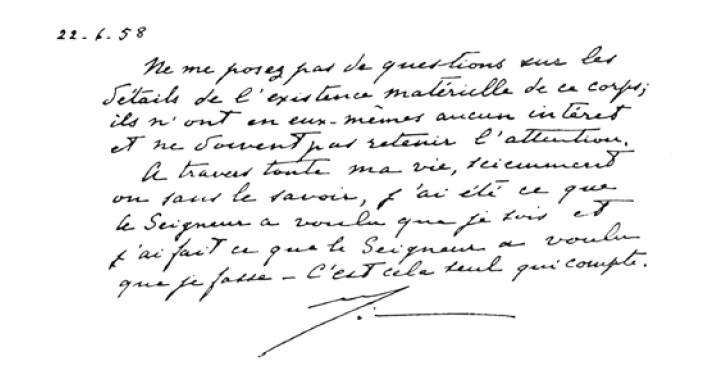 22-6-58
Ne me posez pas de questions sur les
détails de l'existence matérielle de ce corps;
ils n'ont en eux-mêmes aucun intéret
et ne doivent pas retenir l'attention.
A travers toute ma vie, sciemment
ou sans le savoir, j'ai été ce que
le Seigneur a voulu que je sois et
j'ai fait ce que le Seigneur a voulu
que je fasse – C'est cela seul qui compte.